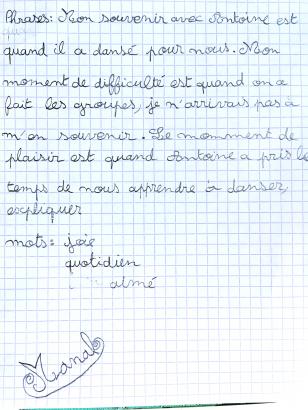 Phrases: Mon souvenir avec Antoine est
quand il a dansé pour nous. Mon
moment de difficulté est quand on a
fait les groupes, je n'arrivais pas à
m'en souvenir. Le momment de
plaisir est quand Antoine a pris le
temps de nous apprendre à danser,
expliquer
mots: joie
quotidien
aimé
Manal